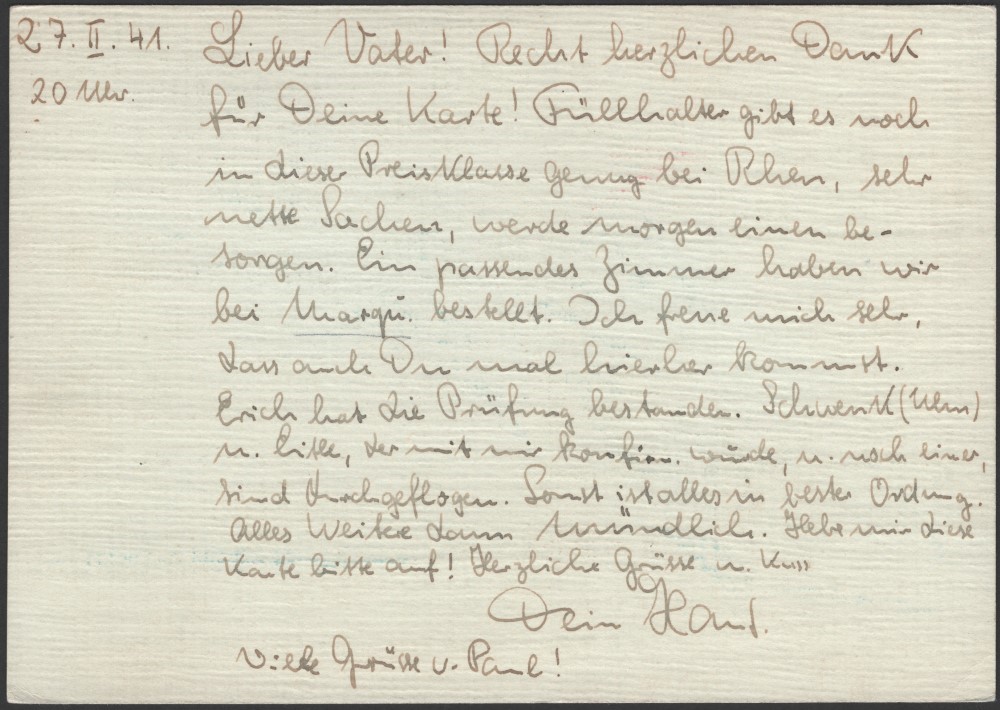 27. II. 41.
20 Uhr.
Lieber Vater! Recht herzlichen Dank
für Deine Karte! Füllhalter gibt es noch
in dieser Preisklasse genug bei Rhen, sehr
nette Sachen, werde morgen einen be-
sorgen. Ein passendes Zimmer haben wir
bei Marqu. bestellt. Ich freue mich sehr,
dass auch Du mal hierher kommst.
Erich hat die Prüfung bestanden. Schwenk (Ulm)
u. , der mit mir konfirm. wurde, u. noch einer,
sind durchgeflogen. Sonst ist alles in bester Ordnung.
Alles Weitere dann mündlich. Hebe mir diese
Karte bitte auf! Herzliche Grüsse u. Kuss
Dein Hans.
Viele Grüsse v. Paul!